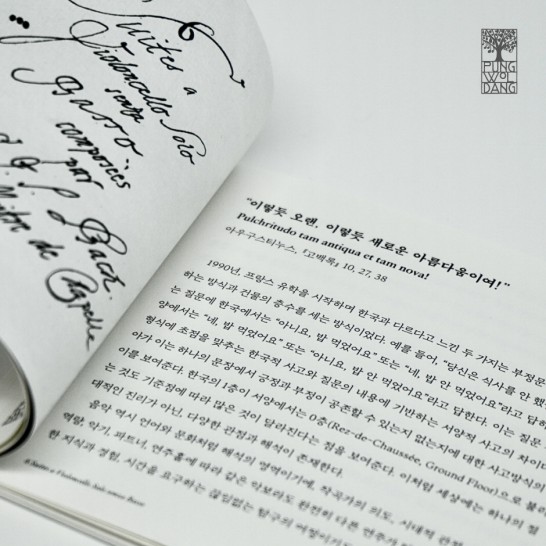 Suites a
Violoncello Solo
senza
Basso
composées
par
J. S. Bach.
Maitre de Chapelle
PUNG
WOL
DANG
“이렇듯 오랜, 이렇듯 새로운 아름다움이여!”
Pulchritudo tam antiqua et tam nova!
아우구스티누스, 『고백록』 10, 27, 38
1990년, 프랑스 유학을 시작하며 한국과 다르다고 느낀 두 가지는 부정문
하는 방식과 건물의 층수를 세는 방식이었다. 예를 들어, “당신은 식사를 안 했
는 질문에 한국에서는 “아니요, 밥 먹었어요” 또는 “네, 밥 안 먹었어요”라고
양에서는 “네, 밥 먹었어요” 또는 “아니요, 밥 안 먹었어요”라고 답한다.
형식에 초점을 맞추는 한국적 사고와 질문의 내용에 기반하는 서양적 사고의 차이다
아가 이는 하나의 문장에서 긍정과 부정이 공존할 수 있는지 없는지에 대한 사고방식의
이를 보여준다. 한국의 1층이 서양에서는 0층(Rez-de-Chaussée, Ground Floor)으로
는 것도 기준점에 따라 많은 것이 달라진다는 점을 보여준다. 이처럼 세상에는 하나의 절
대적인 진리가 아닌, 다양한 관점과 해석이 존재한다.
음악 역시 언어와 문화처럼 해석의 영역이기에, 작곡가의 의도, 시대적 관점
역량, 악기, 파트너, 연주홀에 따라 같은 악보라도 완전히 다른 연주가
한 지식과 경험, 시간을 요구하는 끊임없는 탐구의 여정이기도
6 Suites a Violoncello Solo senza Basso